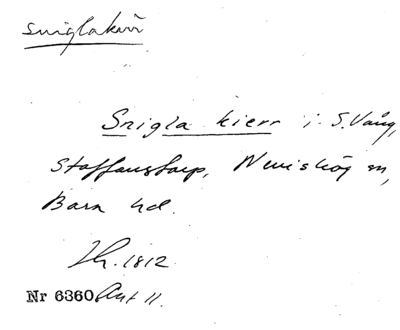 Sniglakärr
Snigla kierr i S. Vång,
Staffanstorp, Nevishög sn,
Bara hd.
1812
Nr 6360 Akt 11.